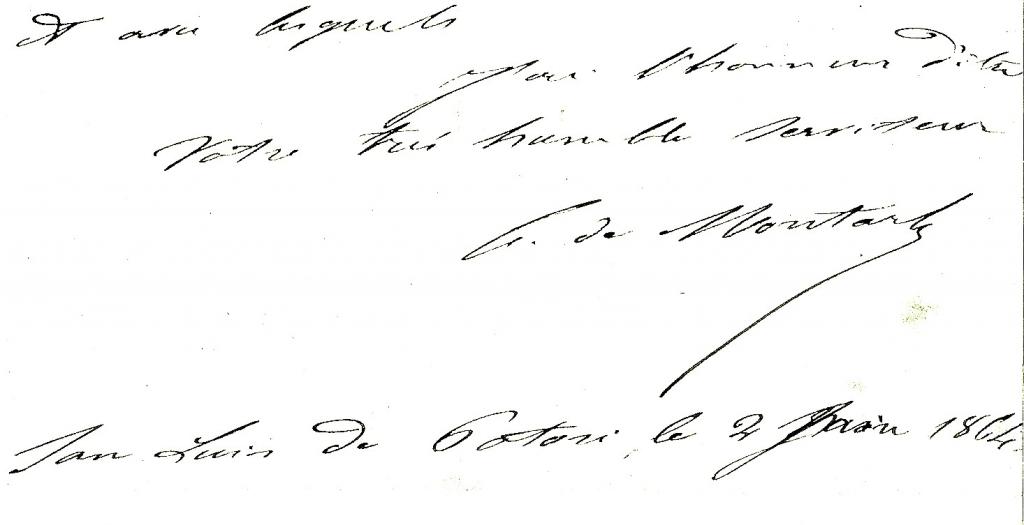 et avec lesquels
J'ai l'honneur d'être
Votre très humble serviteur
de
San Luis de Potosi, le 2 Juin 1864.